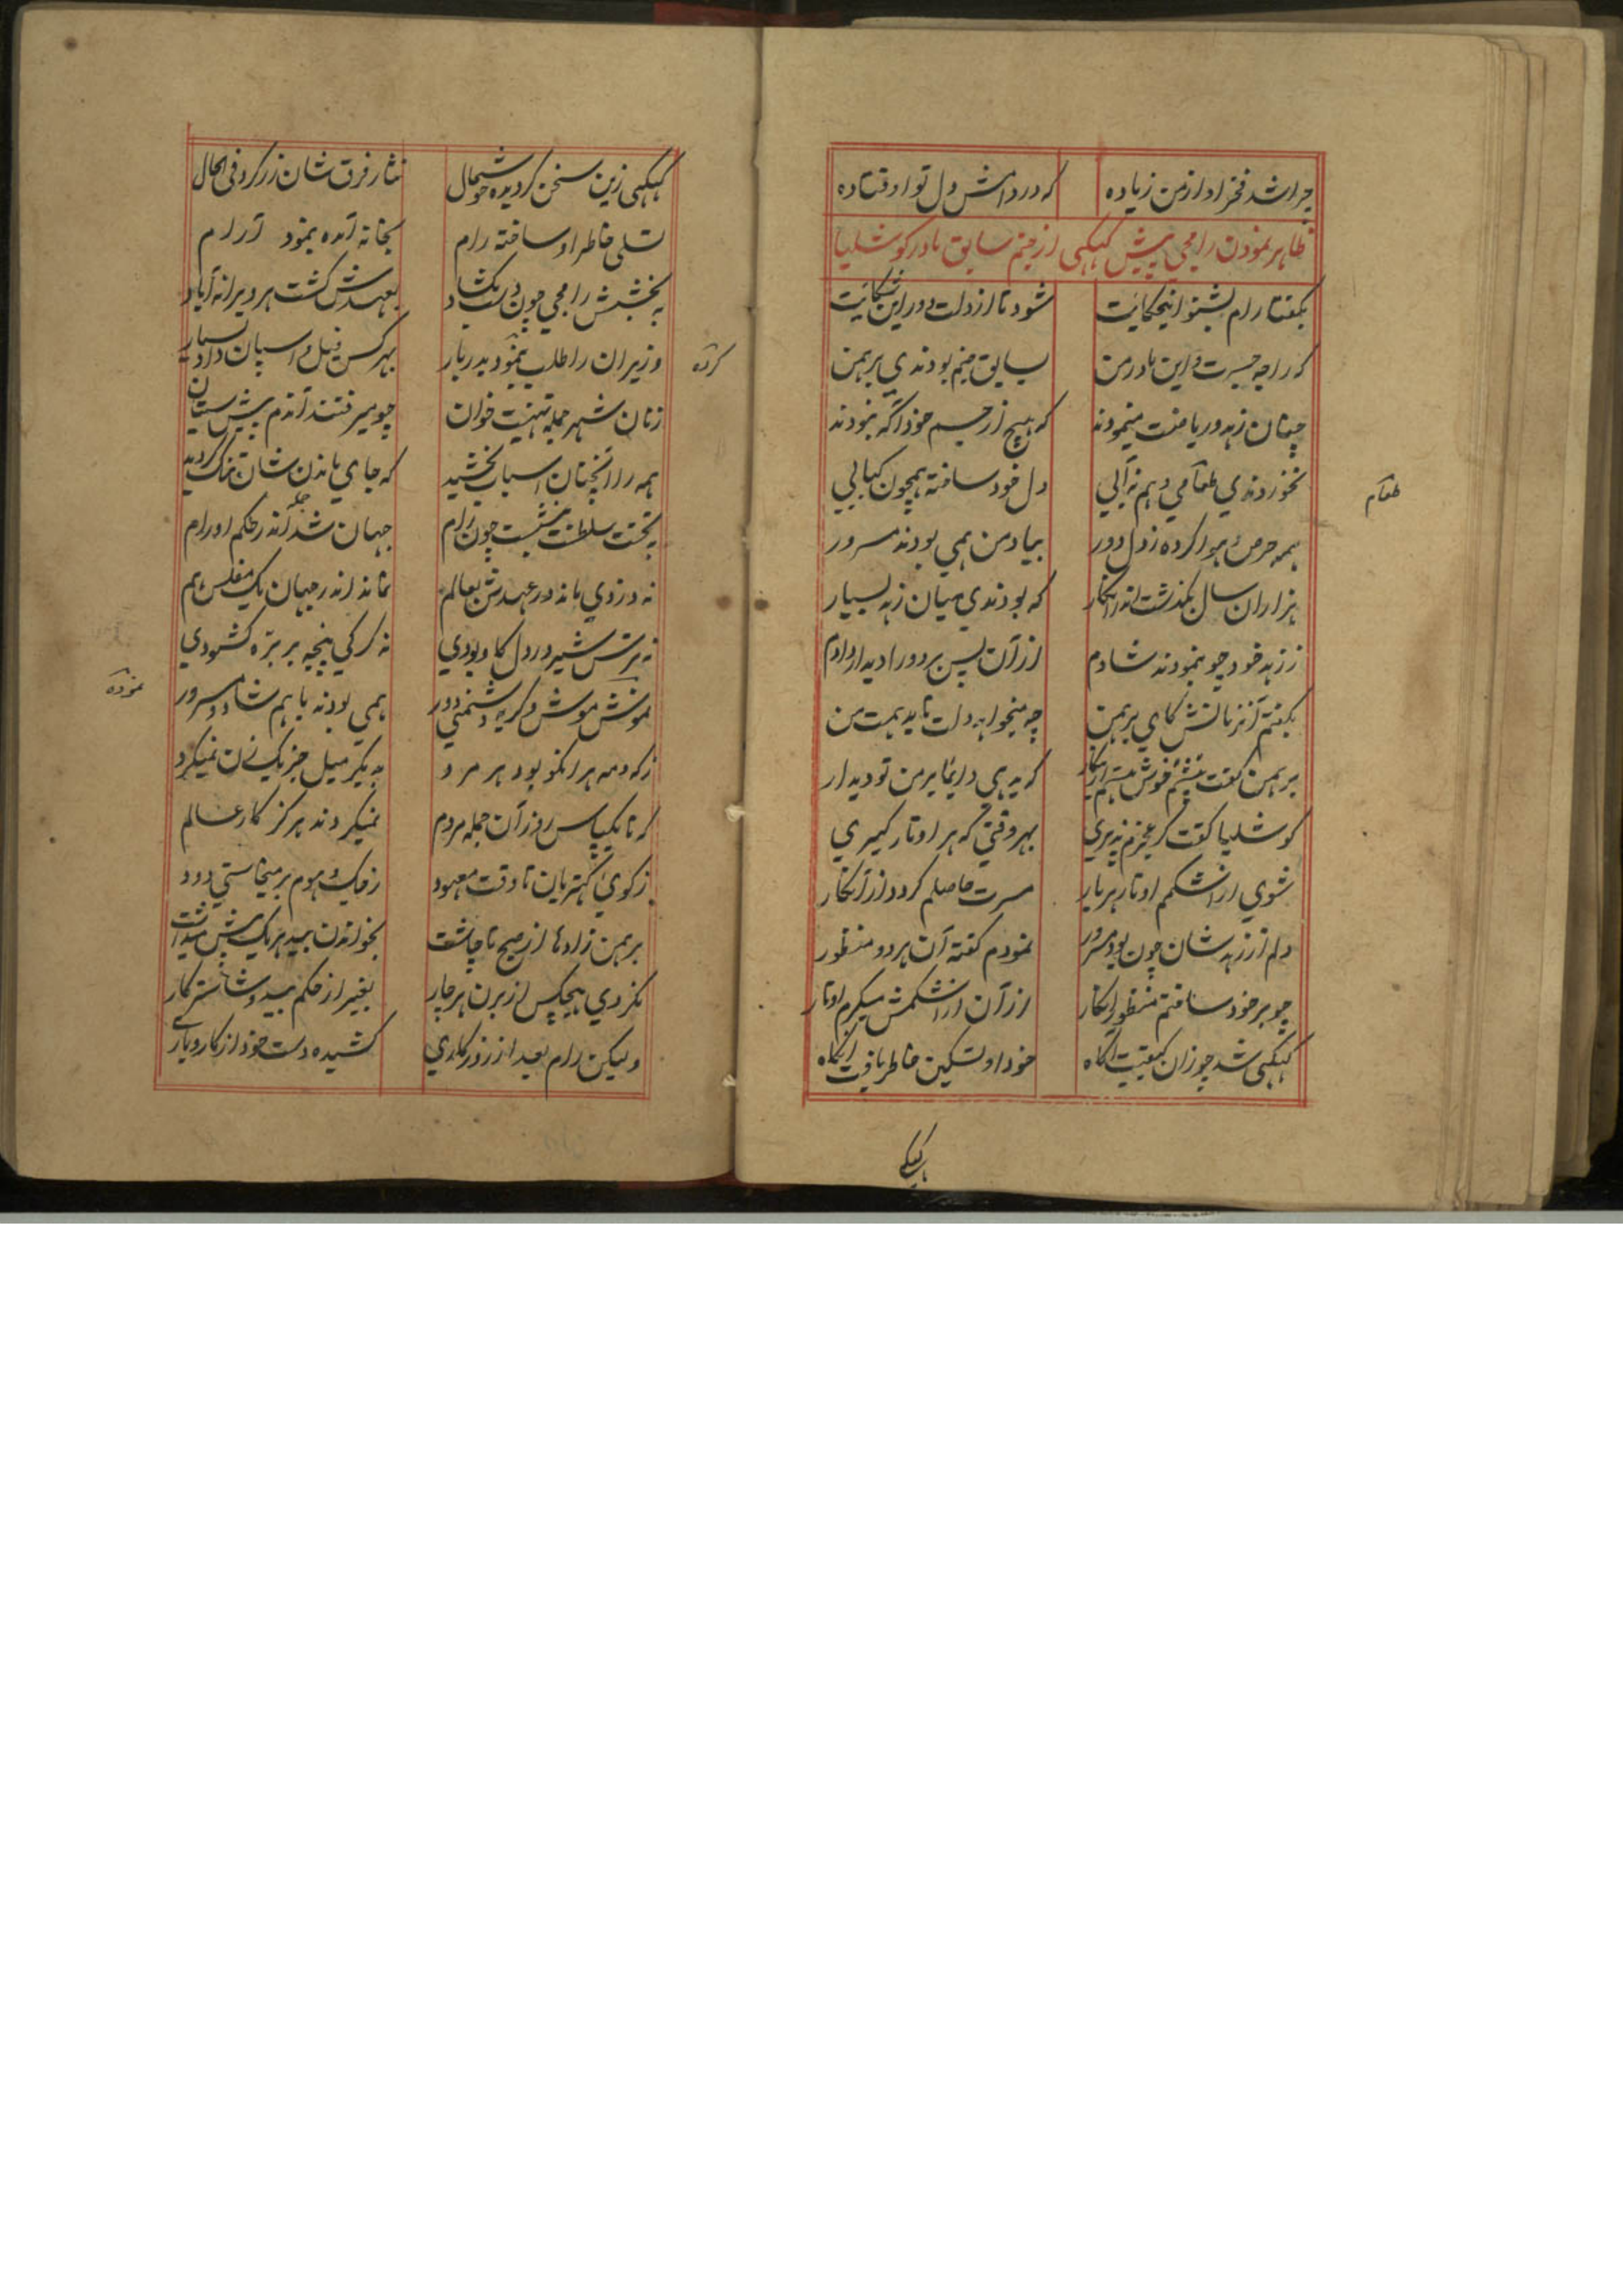 چرا شد فخر او از من زیاده که در دامش دل تو اوفتاده
ظاهر نمودن رامجی پیش کیکهی از جنم سابق مادر کوشلیا
بگفتا رام بشنو اینحکایت شود تا از دلت دور این شکایت
که راجه جسرت و این مادر من بسابق جنم بودندی برهمن
چنان زهد و ریاضت مینمودند که هیچ از جسم خود آگه نبودند
نخوردندی طعامی و هم نه آبی دل خود ساخته همچون کبابی
طعام
همه حرص و هوا کرده ز دل دور بیاد من همی بودند مسرور
هزاران سال بگذشت اندرینکار که بودندی میان زهد بسیار
ز زهد خود چو بنمودند شادم از آن پس هر دو را دیدار دادم
بگفتم آنزمانش کای برهمن چه میخواهد دلت باید بمن
برهمن گفت هستم خواستگار که بدهی دایما بر من تو دیدار
کوشلیا گفت گر عجزم پذیری بهر وقتی که هر اوتار گیری
شوی از اشکمم اوتار هر بار مسرت حاصلم گردد از آنکار
دلم از زهد شان چون بود مسرور نمودم گفته آن هر دو منظور
چو بر خود ساختم منظور اینکار از آن از اشکمش میگیرم اوتار
کیکهی شد چو زان کیفیت آگاه خود او تسکین خاطر یافت آنگاه
کیکهی
کیکهی زین سخن گردیده خوشحال نثار فرق شان زر کرد فی الحال
تسلی خاطر او ساخته رام بخانه آمده بنمود آرام
به بخشش رامجی چون دست بکشاد بعهدش گشت هر ویرانه آباد
وزیران را طلب بنمود بدربار بهر کس فیل و اسپان داد بسیار
کرده
زنان شهر جمله تهنیت خوان چو میرفتند آندم پیش ستیان
همه را آنچنان اسباب بخشید که جای ماندن شان تنگ گردید
بتخت سلطنت بنشست چون رام جهان شد جمله اندر حکم او رام
نه دزدی ماند در عهدش بعالم نماند اندر جهان یک مفلسی هم
نه ترس شیر در دل گاو بودی نه گرگی پنچه بر بره کشودی
نموده موش و گربه دشمنی دور همی بودند با هم شاد و مسرور
نموده
ز که و مه هر آنکو بود هر مرد به دیگر میل جز یک زن نمیکرد
که تا یکپاس روز آن جمله مردم نمیکردند هرگز کار عالم
ز کوی کهتریان تا وقت معهود ز جگ و هوم بر میخاستی دود
برهمن زادها از صبح تا چاشت بخواندن بید هر یک پیش میداشت
نکردی هیچکس از برن هر چار بغیر از حکم بید و شاستر کار
ولیکن رام بعد از روزگاری کشیده دست خود از کاروباری